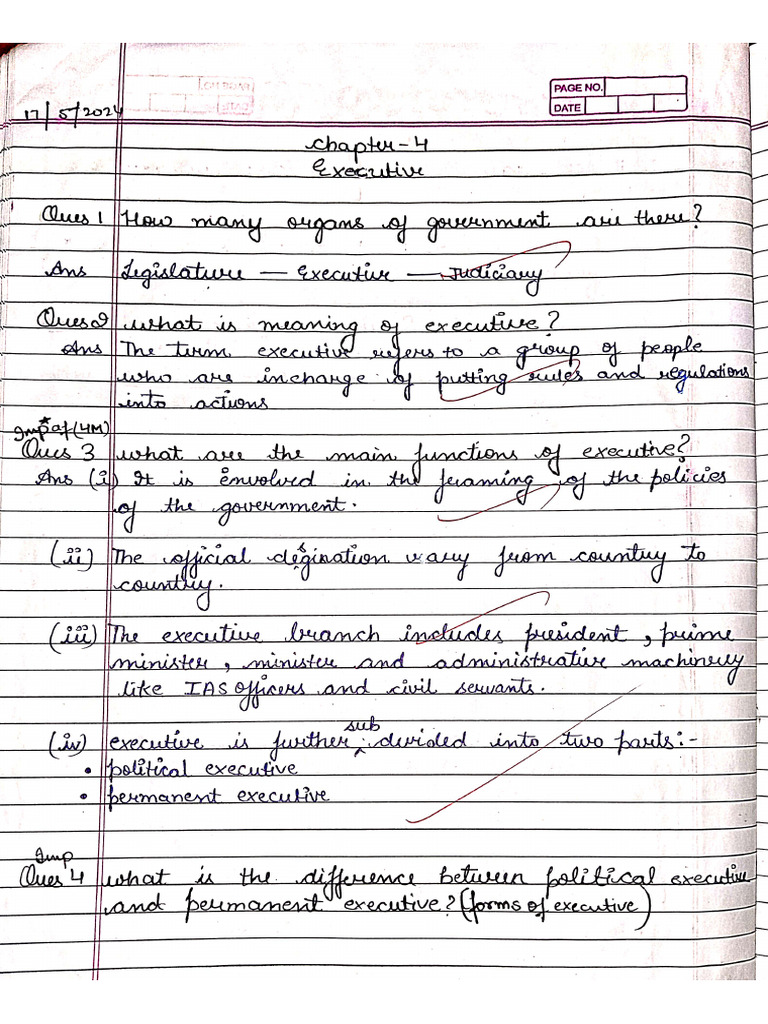 PAGE NO.
DATE
17/5/2024
Chapter-4
Executive
Ques 1 How many organs of government are there?
Ans Legislature — Executive — Judiciary
Ques 2 what is meaning of executive?
Ans The term executive refers to a group of people
who are incharge of putting rules and regulations
into actions
Imp (4M)
Ques 3 what are the main functions of executive?
Ans (i) It is envolved in the framing of the policies
of the government.
(ii) The official desgination vary from country to
country.
(iii) The executive branch includes president, prime
minister, minister and administrative machinery
like IAS officers and civil servants.
(iv) executive is further sub devided into two parts:-
• political executive
• permanent executive
Imp
Ques 4 what is the difference between political executive
and permanent executive? (forms of executive)